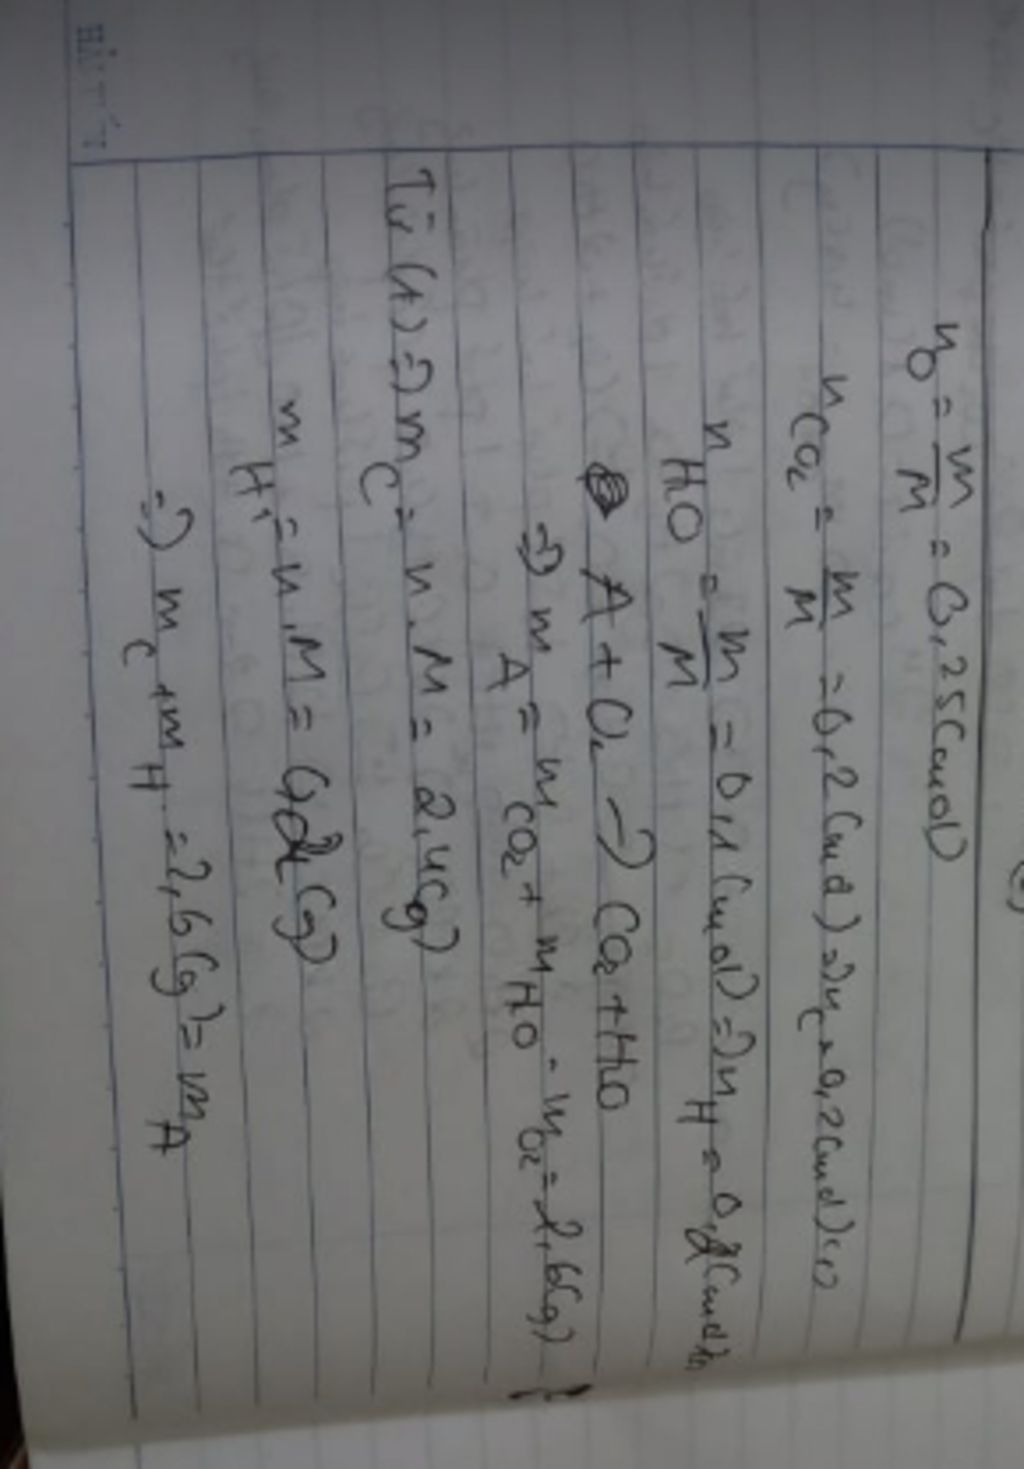 n_O = m/M = 0,25(mol)
n_CO2 = m/M = 0,2(mol) => n_C = 0,2(mol)(1)
n_HO = m/M = 0,1(mol) => n_H = 0,2(mol)
A + O2 -> CO2 + HO
=> m_A = m_CO2 + m_HO - m_O2 = 2,6(g)
Từ (1) => m_C = n.M = 2,4(g)
m_H = n.M = 0,2(g)
=> m_C + m_H = 2,6(g) = m_A